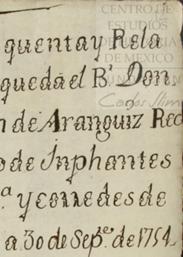 CENTRO
DE ESTUDIOS
DE HISTORIA
DE MEXICO
quenta y Rela
queda el B.r Don.
n de Aranguiz Rec
o de Inphantes
.a y corre desde
a 30 de Sep.e de 1754.